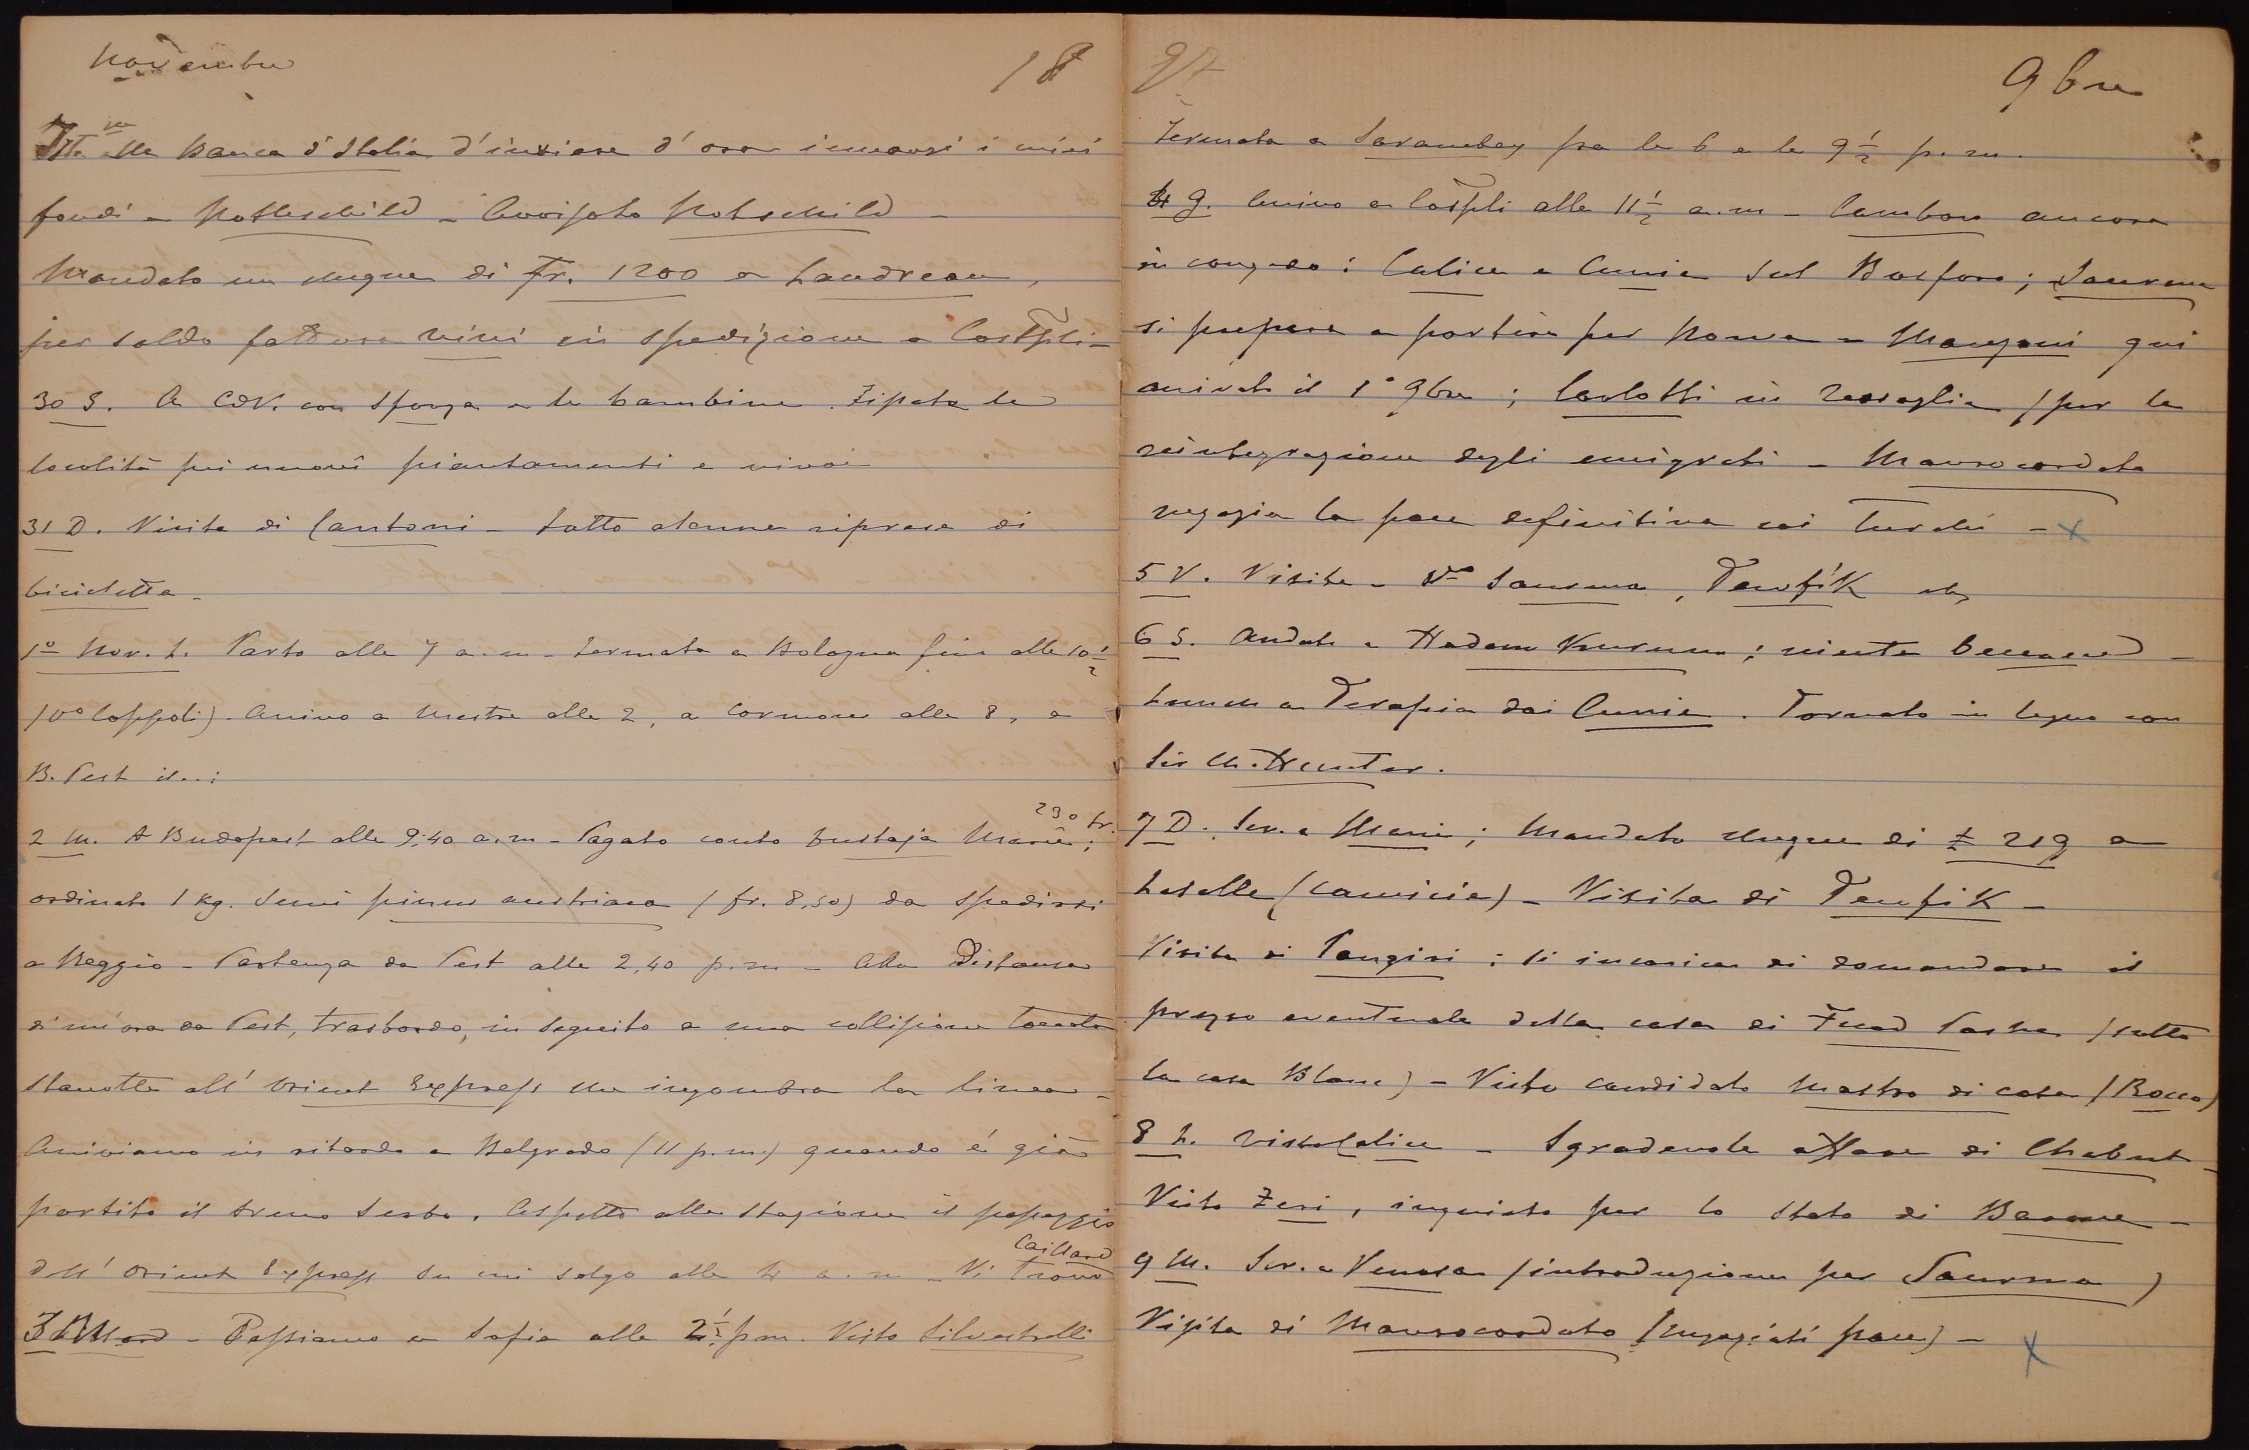 Novembre 18
alla Banca d'Italia d'inviare d'ora innanzi i miei
fondi a Rothschild - Avvisato Rotschild -
Mandato un chèque di Fr. 1200 a Landreau,
per saldo fattura vini in spedizione a Costpli -
30 S. A CdV. con Sforza e le bambine. Fissata la
località pei nuovi piantamenti e vivai
31 D. Visita di Cantoni - Fatto alcune riprese di
bicicletta -
1º Nov. L. Parto alle 7 a.m - Fermata a Bologna fino alle 10 ½
Coppoli). Arrivo a Mestre alle 2, a Cormons alle 8, a
B. Pest il..:
230 fr.
2 M. A Budapest alle 9,40 a.m - Pagato conto Marie;
ordinato 1 Kg. semi pinus austriaca (fr. 8,50) da spedirsi
a Reggio - Partenza da Pest alle 2,40 p.m - Alla distanza
di un'ora da Pest, trasbordo, in seguito a una collisione toccata
stanotte all'Orient Express che ingombra la linea -
Arriviamo in ritardo a Belgrado (11 p.m.) quando è già
partito il treno serbo. Aspetto alla stazione il passaggio
Caillard
dell'Orient Express su cui salgo alle 4 a.m - Vi trovo
3 - Passiamo a Sofia alle 2 ½ p.m. Visto Silvestrelli
97 9bre
Fermata a Sarambey fra le 6 e le 9 ½ p.m.
4 G. Arrivo a Costpli alle 11 ½ a.m - Cambon ancora
in congedo; Calice e Currie sul Bosforo; Saurma
si prepara a partire per Roma - Manzoni qui
arrivato il 1º 9bre; Carlotti in Tessaglia (per la
reintegrazione degli emigrati - Maurocordato
negozia la pace definitiva coi Turchi - x
5 V. Visite - Saurma, Tewfik
6 S. Andato a ; niente beccacce -
Lunch a Terapia dai Currie. Tornato in legno con
Sir Hunter.
7 D. Scr. a ; Mandato chèque di £ 219 a
(camicie) - Visita di Tewfik -
Visita di Pangiri: li incarico di domandare il
prezzo eventuale della casa di Fuad Pasha (sotto
la casa Blanc) - Visto candidato mastro di casa (Rocco)
8 L. Visto Calice - Sgradevole affare di Chabert -
Visto Zeri, inquieto per lo stato di Barone -
9 M. Scr. a Venosa (introduzione per Saurma)
Visita di Maurocordato (negoziati pace) - x